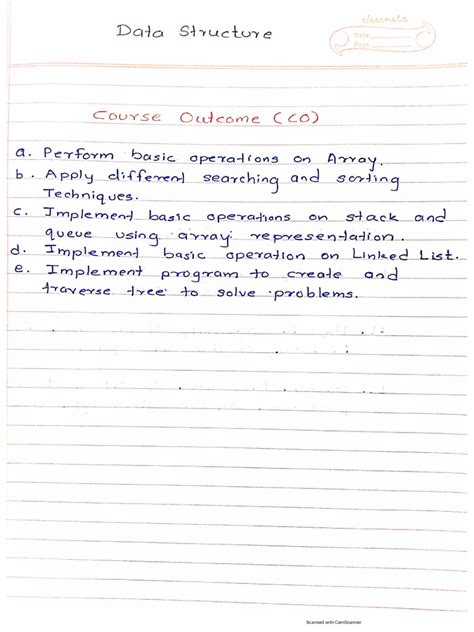 Data Structure
classmate
Date
Page
Course Outcome (CO)
a. Perform basic operations on Array.
b. Apply different searching and sorting
Techniques.
c. Implement basic operations on stack and
queue using array representation.
d. Implement basic operation on Linked List.
e. Implement program to create and
traverse tree to solve problems.
Scanned with CamScanner